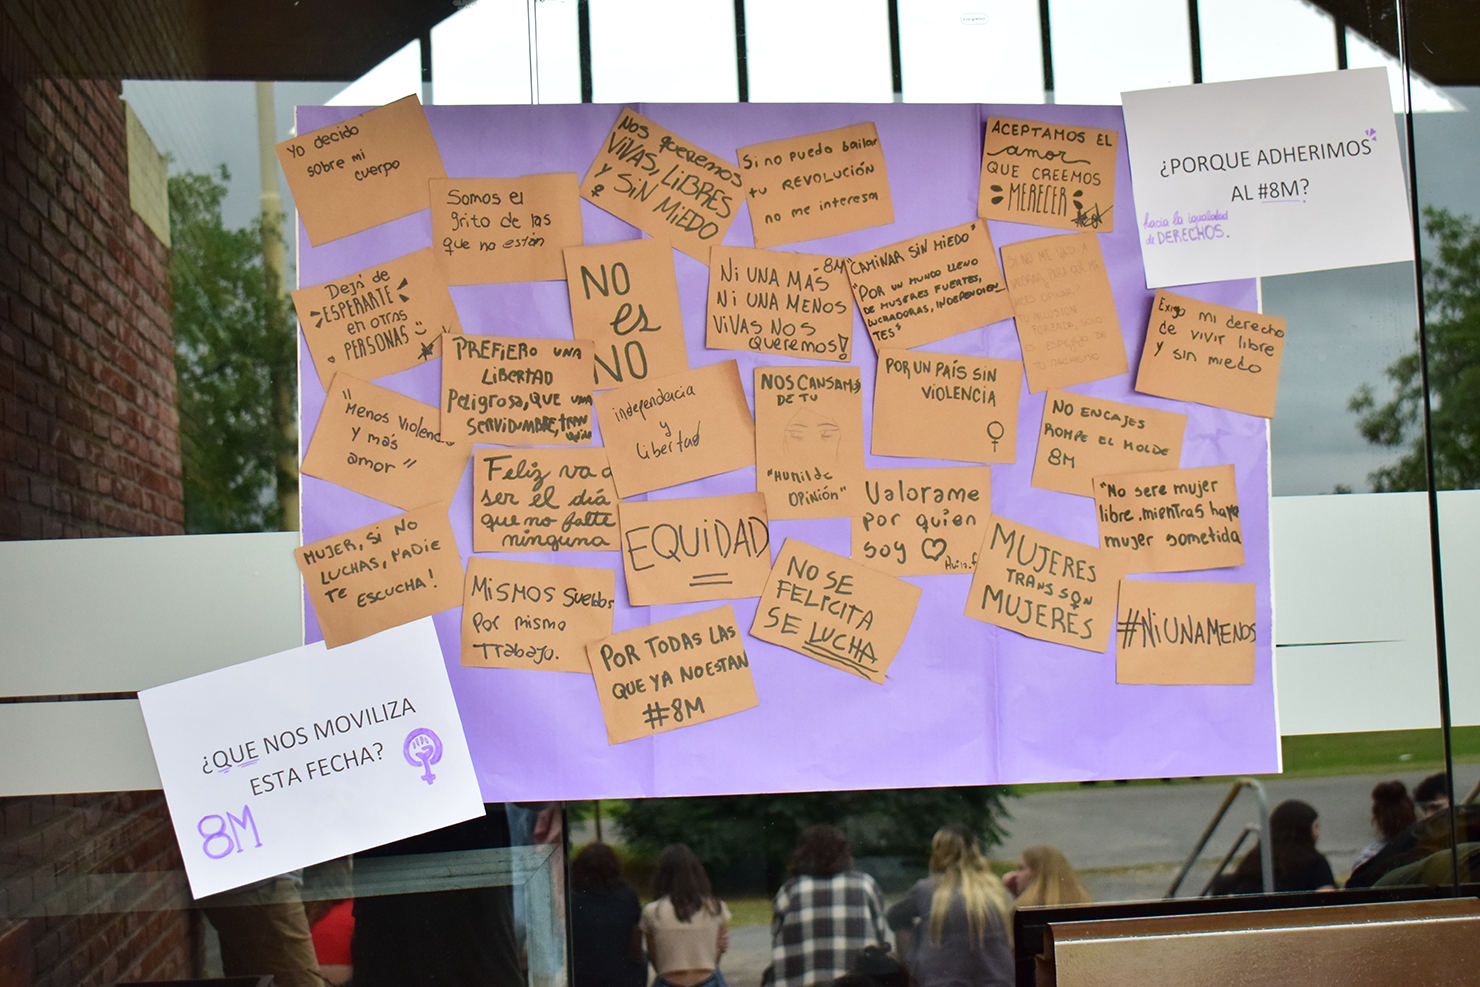 Yo decido
sobre mi
cuerpo
Somos el
grito de las
que no están
Nos queremos
VIVAS, LIBRES
y SIN MIEDO
Si no puedo bailar
tu REVOLUCIÓN
no me interesa
ACEPTAMOS EL
amor
QUE CREEMOS
MERECER
¿PORQUE ADHERIMOS
AL #8M?
hacia la igualdad
de DERECHOS.
Dejá de
ESPERARTE
en OTRAS
PERSONAS
NO
es
NO
8M
Ni UNA MÁS
Ni UNA MENOS
ViVAS NOS
QUEREMOS!
"CAMINAR SIN MIEDO"
"POR UN MUNDO LLENO
DE MUJERES FUERTES,
LUCHADORAS, INDEPENDIEN
TES"
SI NO ME VAS A
Exijo mi derecho
de vivir libre
y sin miedo
PREFIERO UNA
LIBERTAD
Peligrosa, QUE UNA
SERVIDUMBRE
"Menos violencia
y más
amor"
independencia
y
libertad
NOS CANSAMOS
DE TU
"Humilde
OPINIÓN"
POR UN PAÍS SIN
VIOLENCIA
NO ENCAJES
ROMPE EL MOLDE
8M
Feliz va a
ser el día
que no falte
ninguna
EQUIDAD
Valorame
por quien
soy
"No sere mujer
libre, mientras haya
mujer sometida
MUJER, SI NO
LUCHAS, NADIE
TE ESCUCHA!
MISMOS Sueldos
Por mismo
Trabajo.
NO SE
FELICITA
SE LUCHA
MUJERES
TRANS SON
MUJERES
#NiUNAMENOS
POR TODAS LAS
QUE YA NO ESTAN
#8M
¿QUE NOS MOVILIZA
ESTA FECHA?
8M